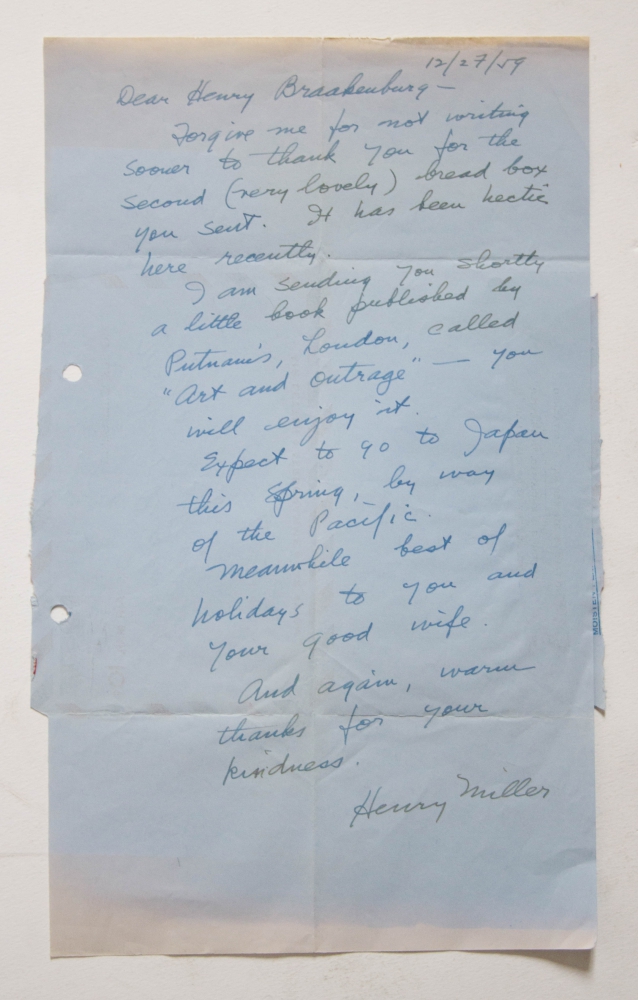 12/27/59
Dear Henry Braakenburg —
Forgive me for not writing
sooner to thank you for the
second (very lovely) bread box
you sent. It has been hectic
here recently.
I am sending you shortly
a little book published by
Putnam's, London, called
"Art and Outrage" — you
will enjoy it.
Expect to go to Japan
this Spring, by way
of the Pacific.
Meanwhile best of
holidays to you and
your good wife.
And again, warm
thanks for your
kindness.
Henry Miller